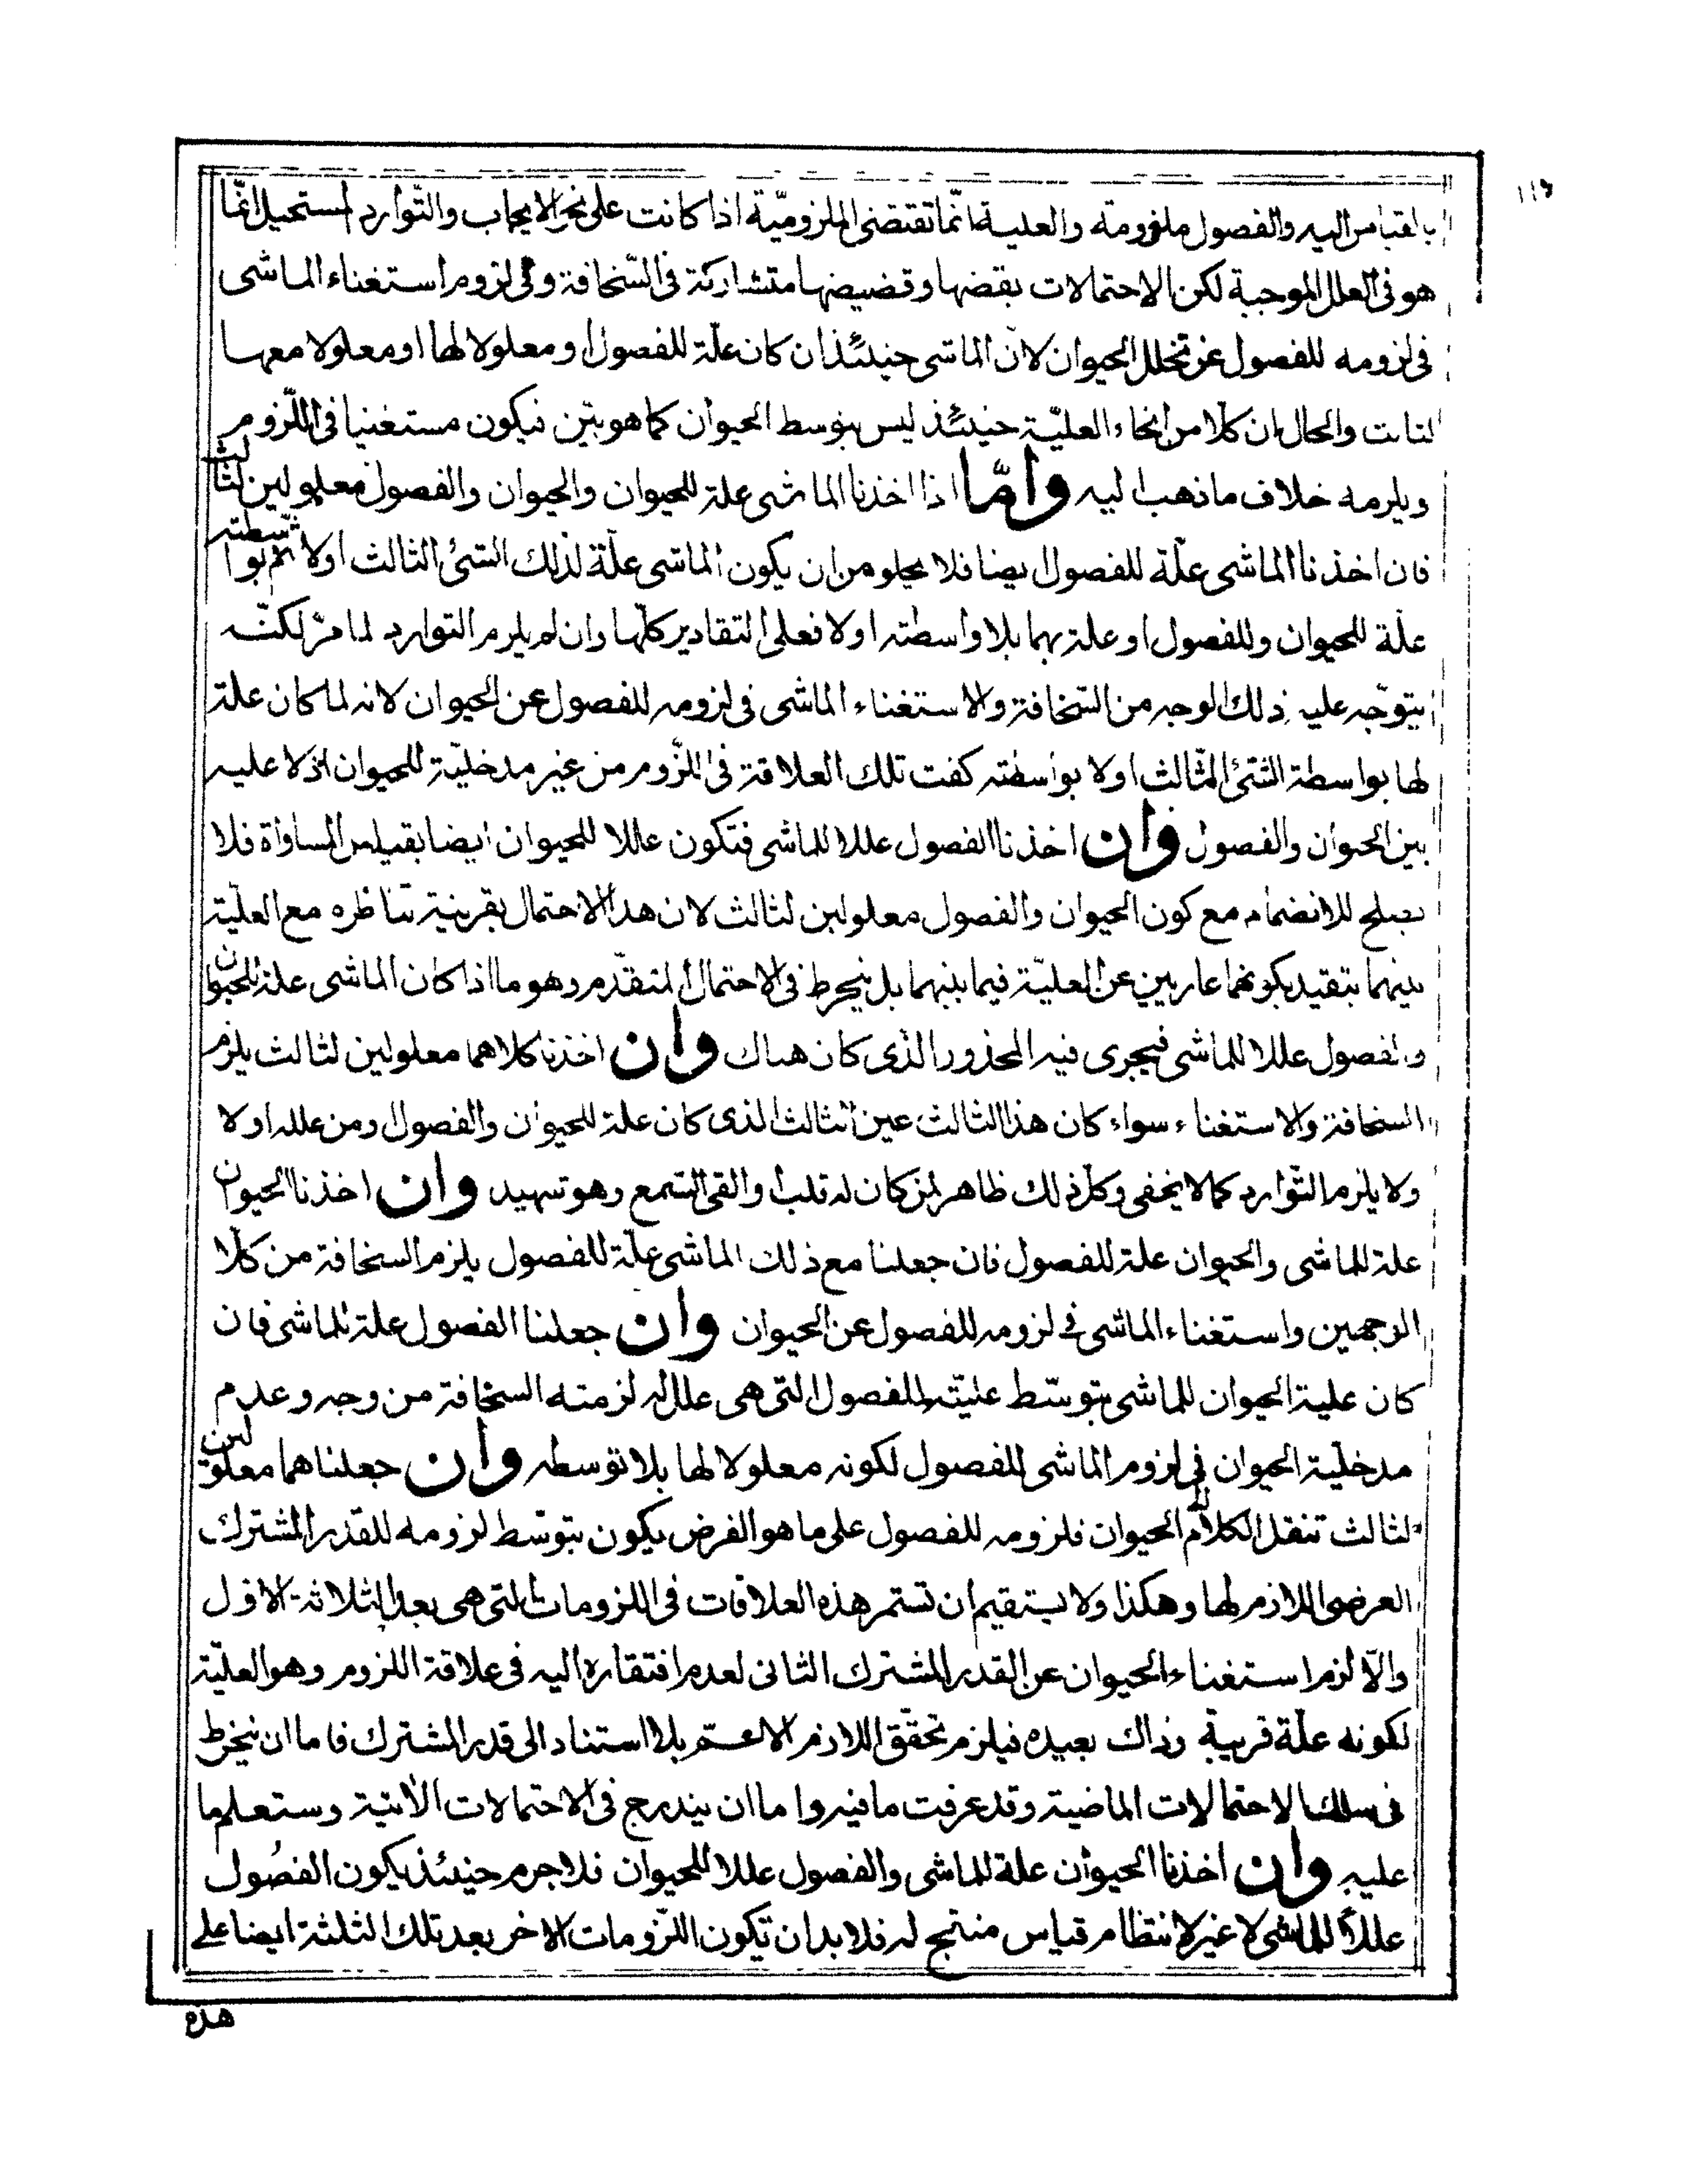 بالقياس اليه والفصول ملزومة والعلية انما تقتضى الملزومية اذا كانت على نحو الايجاب والتوارد المستحيل انما
هو فى العلل الموجبة لكن الاحتمالات بقضها وقضيضها متشاركة فى السخافة وفى لزوم استغناء الماشى
فى لزومه للفصول عن تخلل الحيوان لان الماشى حينئذ ان كان علة للفصول او معلولا لها او معلولا معها
لثالث والحال ان كلا من انحاء العلية حينئذ ليس بتوسط الحيوان كما هو بين فيكون مستغنيا فى اللزوم
ويلزمه خلاف ما ذهب اليه واما اذا اخذنا الماشى علة للحيوان والحيوان والفصول معلولين لثالث
فان اخذنا الماشى علة للفصول ايضا فلا يخلو من ان يكون الماشى علة لذلك الشئ الثالث اولا ثم بواسطته
علة للحيوان وللفصول او علة بهما بلا واسطته اولا فعلى التقادير كلها وان لم يلزم التوارد لما مر لكنه
يتوجه عليه ذلك الوجه من السخافة والاستغناء الماشى فى لزومه للفصول عن الحيوان لانه لما كان علة
لها بواسطة الشئ الثالث اولا بواسطته كفت تلك العلاقة فى اللزوم من غير مدخلية للحيوان اذ لا علية
بين الحيوان والفصول وان اخذنا الفصول عللا للماشى فتكون عللا للحيوان ايضا بقياس المساواة فلا
يصلح للانضمام مع كون الحيوان والفصول معلولين لثالث لان هذا الاحتمال بقرينة تناظره مع العلية
بينهما بتقييد بكونهما عاريين عن العلية فيما بينهما بل ينخرط فى الاحتمال المتقدم وهو ما اذا كان الماشى علة للحيوان
والفصول عللا للماشى فيجرى فيه المحذور الذى كان هناك وان اخذنا كلاهما معلولين لثالث يلزم
السخافة والاستغناء سواء كان هذا الثالث عين الثالث الذى كان علة للحيوان والفصول ومن علله اولا
ولا يلزم التوارد كما لا يخفى وكل ذلك ظاهر لمن كان له قلب او القى السمع وهو شهيد وان اخذنا الحيوان
علة للماشى والحيوان علة للفصول فان جعلنا مع ذلك الماشى علة للفصول يلزم السخافة من كلا
الوجهين واستغناء الماشى فى لزومه للفصول عن الحيوان وان جعلنا الفصول علة للماشى فان
كان علية الحيوان للماشى بتوسط عليته للفصول التى هى علل له لزمته السخافة من وجه وعدم
مدخلية الحيوان فى لزوم الماشى للفصول لكونه معلولا لها بلا توسطه وان جعلناهما معلولين
لثالث ننقل الكلام الى الحيوان فلزومه للفصول على ما هو الفرض يكون بتوسط لزومه للقدر المشترك
العرضى اللازم لها وهكذا ولا يستقيم ان تستمر هذه العلاقات فى اللزومات التى هى بعد الثلاثة الاول
والا لزم استغناء الحيوان عن القدر المشترك الثانى لعدم افتقاره اليه فى علاقة اللزوم وهو العلية
لكونه علة قريبة وذاك بعيده فيلزم تحقق اللازم الاعم بلا استناد الى قدر المشترك فاما ان ينخرط
فى سلك الاحتمالات الماضية وقد عرفت ما فيه واما ان يندرج فى الاحتمالات الاتية وستعلم ما
عليه وان اخذنا الحيوان علة للماشى والفصول عللا للحيوان فلا جرم حينئذ يكون الفصول
عللا للماشى لا غير لانتظام قياس منتج له فلابد ان تكون اللزومات الاخر بعد تلك الثلثة ايضا على
هذه